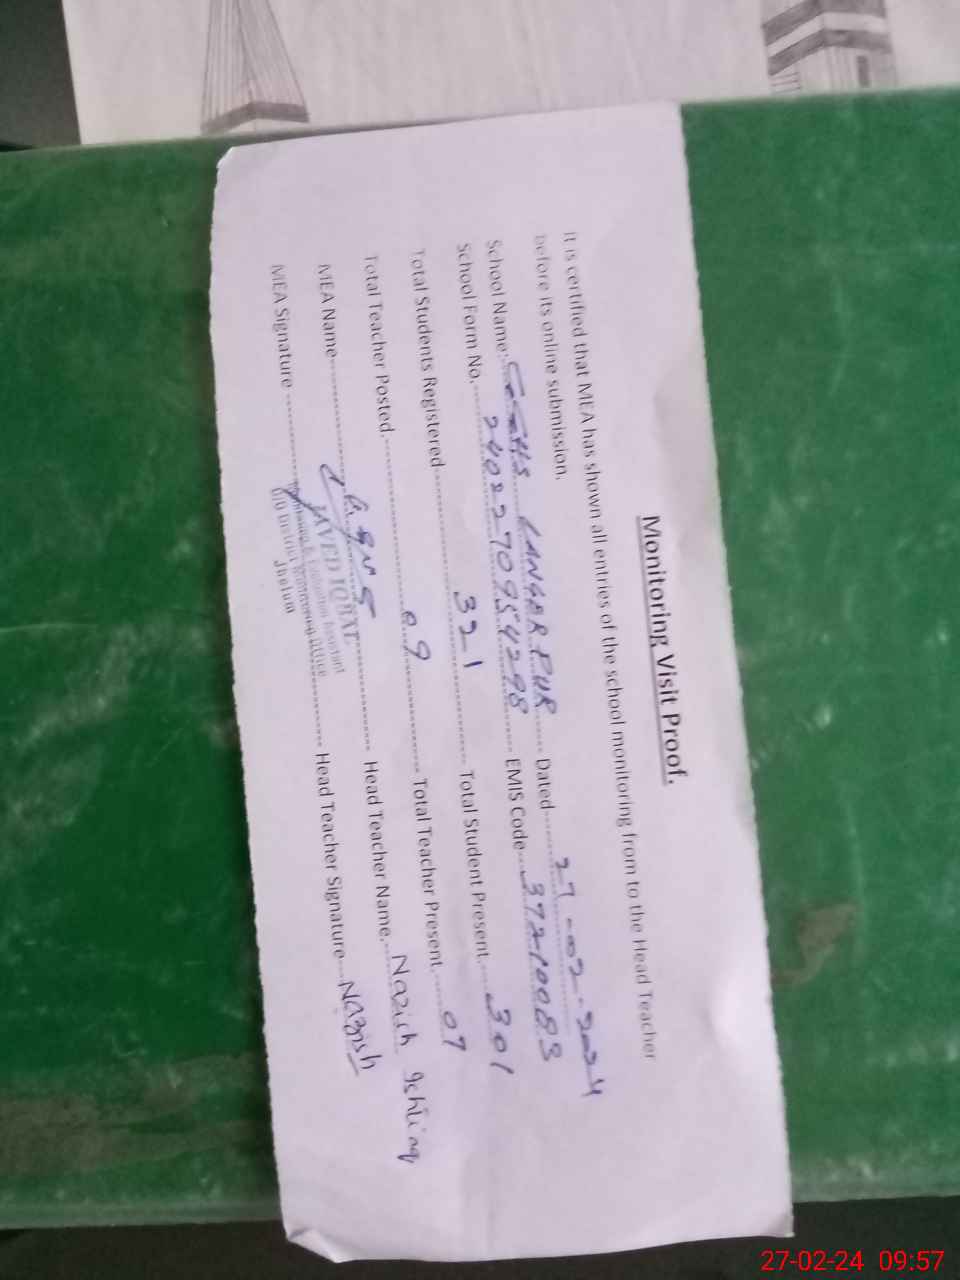 Monitoring Visit Proof.
It is certified that MEA has shown all entries of the school monitoring from to the Head Teacher
before its online submission.
School Name: GGHS LANGAR PUR Dated 27-02-2024
School Form No. 24022709954298 EMIS Code 37210083
Total Students Registered 321 Total Student Present. 301
Total Teacher Posted. 09 Total Teacher Present. 07
MEA Name Head Teacher Name. Nazish Ishtiaq
MEA Signature Head Teacher Signature Nazish
JAVED IQBAL
Monitoring & Evaluation Assistant
O/O District Monitoring Office
Jhelum
27-02-24 09:57